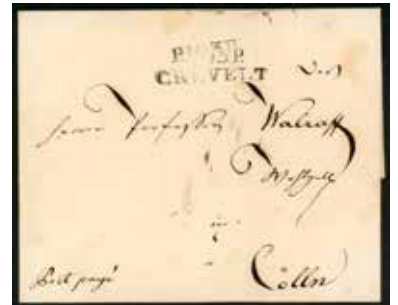 CREVELT
Des
Herrn Professor Walraff
in
Cölln
Port payé